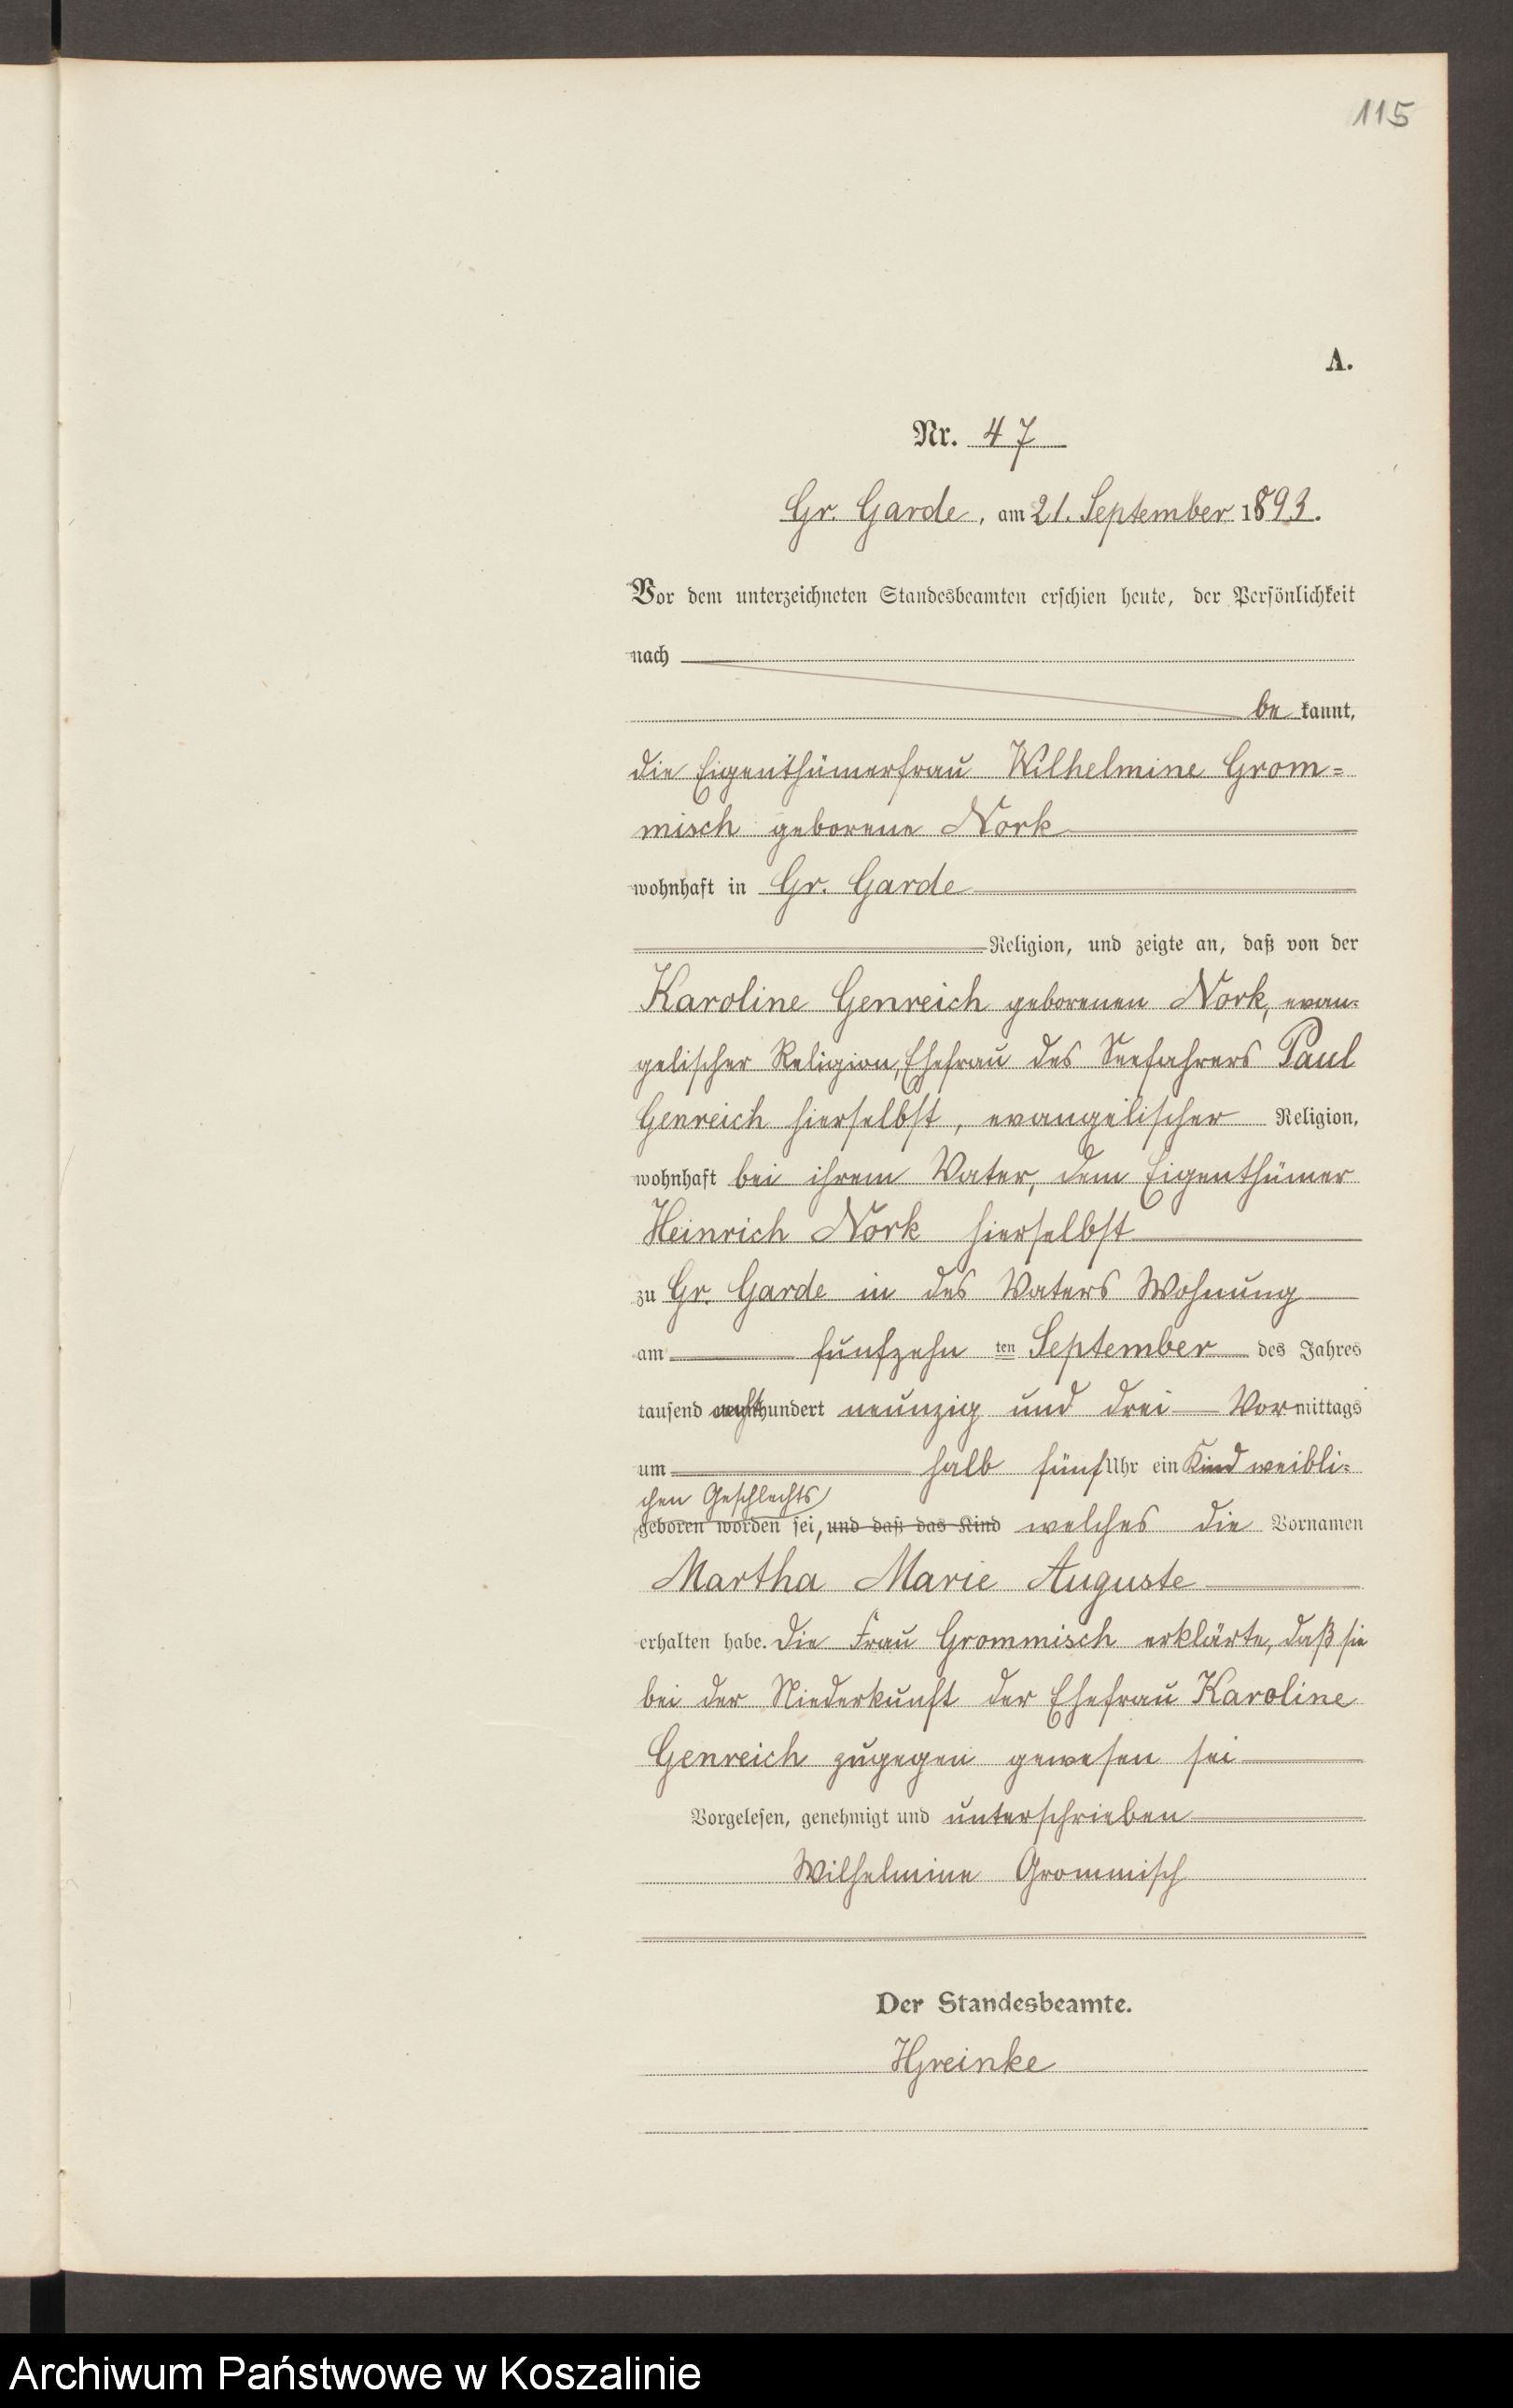 115
A.
Nr. 47
Gr. Garde, am 21. September 1893.
Vor dem unterzeichneten Standesbeamten erschien heute, der Persönlichkeit
nach
be kannt,
die Eigenthümerfrau Wilhelmine Grom=
misch geborene Nork
wohnhaft in Gr. Garde
Religion, und zeigte an, daß von der
Karoline Genreich geborenen Nork, evan=
gelischer Religion, Ehefrau des Seefahrers Paul
Genreich hierselbst, evangelischer Religion,
wohnhaft bei ihrem Vater, dem Eigenthümer
Heinrich Nork hierselbst
zu Gr. Garde in des Vaters Wohnung
am fünfzehn ten September des Jahres
tausend achthundert neunzig und drei Vormittags
um halb fünf Uhr ein Kind weibli=
chen Geschlechts
geboren worden sei, und daß das Kind welches die Vornamen
Martha Marie Auguste
erhalten habe. Die Frau Grommisch erklärte, daß sie
bei der Niederkunft der Ehefrau Karoline
Genreich zugegen gewesen sei
Vorgelesen, genehmigt und unterschrieben
Wilhelmine Grommisch
Der Standesbeamte.
HGreinke
Archiwum Państwowe w Koszalinie